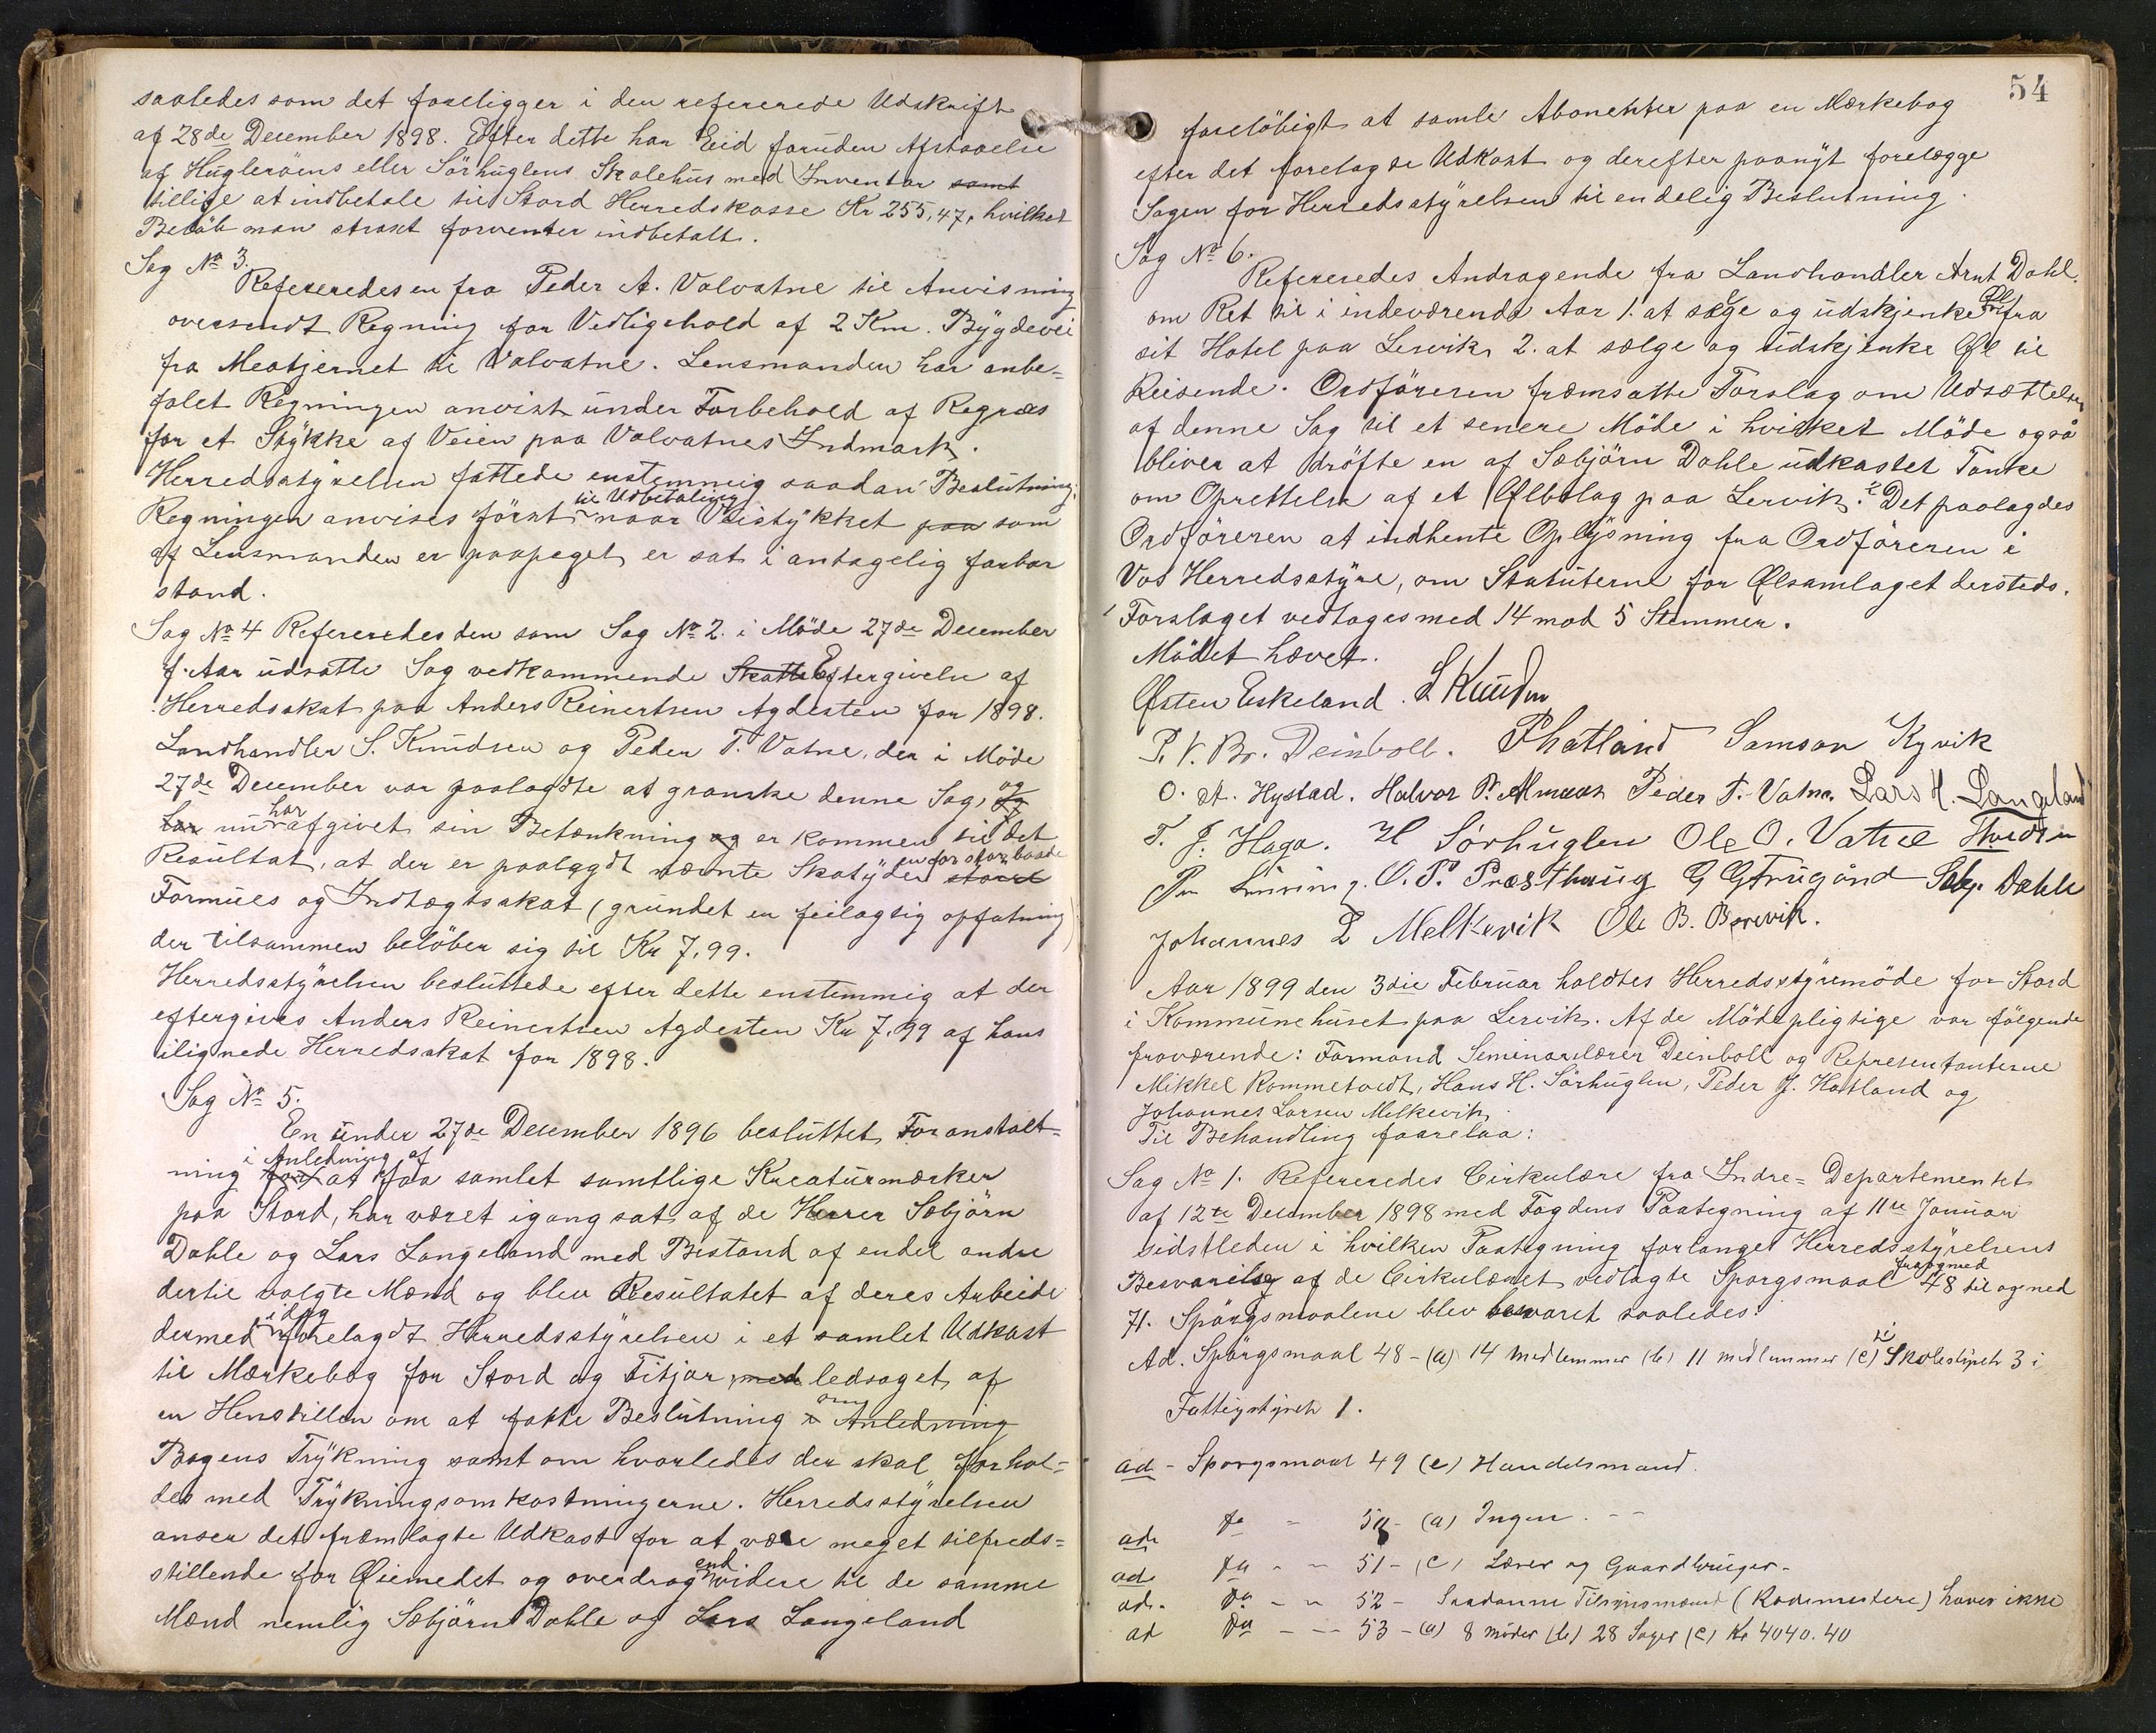 saaledes som det foreligger i den refererede Udskrift
af 28de December 1898. Efter dette har Eid foruden Afstaaelse
af Huglerøens eller Sörhuglens Skolehus med Inventar samt
tillige at indbetale til Stord Herredskasse Kr 255,47, hvilket
Belöb man straxt forventer indbetalt.
Sag No 3.
Refereredes en fra Peder A. Valvatne til Anvisning
oversendt Regning for Vedligehold af 2 Km. Bygdevei
fra Meatjernet til Valvatne. Lensmanden har anbe-
falet Regningen anvist under Forbehold af Regres
for et Stykke af Veien paa Valvatnes Indmark.
Herredsstyrelsen fattede enstemmig saadan Beslutning:
Regningen anvises först til Udbetaling naar Veistykket paa som
af Lensmanden er paapeget er sat i antagelig farbar
stand.
Sag No 4 Refereredes den som Sag No 2. i Möde 27de December
f. Aar udsatte Sag vedkommende Skatte Eftergivelse af
Herredsskat paa Anders Reinertsen Agdesten for 1898.
Landhandler S. Knudsen og Peder T. Vatne, der i Möde
27de December var paalagdte at granske denne Sag, og
har nu har afgivet sin Betænkning og er kommen til det
Resultat, at der er paalagdt nævnte Skatyder en for stor baade
Formues og Indtægtsskat (grundet en feilagtig opfatning)
der tilsammen belöber sig til Kr 7,99.
Herredsstyrelsen besluttede efter dette enstemmig at der
eftergives Anders Reinertsen Agdesten Kr 7.99 af hans
ilignede Herredsskat for 1898.
Sag No 5.
En under 27de December 1896 besluttet Foranstalt-
ning i Anledning af for at faa samlet samtlige Kreaturmærker
paa Stord, har været igangsat af de Herrer Sæbjörn
Dahle og Lars Langeland med Bistand af endel andre
dertil valgte Mænd og blev Resultatet af deres Arbeide
dermed idag forelagdt Herredsstyrelsen i et samlet Udkast
til Mærkebog for Stord og Fitjar, med ledsaget af
en Henstillen om at fatte Beslutning i Anledning om
Bogens Trykning samt om hvorledes der skal forhol-
des med Trykningsomkostningerne. Herredsstyrelsen
anser det fræmlagte Udkast for at være meget tilfreds-
stillende for Øiemedet og overdrog endvidere til de samme
Mænd nemlig Sæbjörn Dahle og Lars Langeland
54
foreløbigt at samle Abonenter paa en Mærkebog
efter det forelagde Udkast og derefter paanyt forelægge
Sagen for Herredsstyrelsen til endelig Beslutning.
Sag No 6.
Refereredes Andragende fra Landhandler Arnt Dahl.
om Ret til i indeværende Aar 1. at sælge og udskjenke Øl fra
sit Hotel paa Lervik, 2. at sælge og udskjenke Øl til
Reisende. Ordföreren fræmsatte Forslag om Udsættelse
af denne Sag til et senere Möde i hvilket Möde også
bliver at dröfte en af Sæbjörn Dahle udkastet Tanke
om Oprettelse af et Ølbolag paa Lervik. Det paalagdes
Ordföreren at indhente Oplysning fra Ordföreren i
Vos Herredsstyre, om Statuterne for Ølsamlaget dersteds.
Forslaget vedtages med 14 mod 5 Stemmer.
Mödet hævet.
Østen Eskeland. S Knudsen
P. V. Br. Deinboll. PHatland Samson Kyvik
O. A. Hystad. Halvor P. Almaas Peder T. Vatne. Lars H. Langeland
T. J. Haga. H Sörhuglen Ole O. Vatne
O. P. Præsthaug Sæbj. Dahle
Johannes L Melkevik Ole B. Borevik.
Aar 1899 den 3die Februar holdtes Herredsstyremöde for Stord
i Kommunehuset paa Lervik. Af de Mödepligtige var fölgende
fraværende: Formand Seminarlærer Deinboll og Representanterne
Mikkel Rommetvedt, Hans H. Sörhuglen, Peder J. Hatland og
Johannes Larsen Melkevik.
Til Behandling foarelaa:
Sag No 1. Refereredes Cirkulære fra Indre-Departementet
af 12te December 1898 med Fogdens Paategning af 11te Januar
sidstleden i hvilken Paategning forlanget Herredsstyrelsens
Besvarelse af de Cirkulæret vedlagte Spörgsmaal fra og med 48 til og med
71. Spörgsmaalene blev besvaret saaledes:
Ad. Spörgsmaal 48 - (a) 14 medlemmer (b) 11 medlemmer (c) til Skolestyret 3 i
Fattigstyret 1.
ad - Spörgsmaal 49 (c) Handelsmand.
ad da - 50 - (a) Ingen. - -
ad da - - 51 - (c) Lærer og Gaardbruger -
ad. da - - 52 - Saadanne Tilsynsmænd (Rodemestere) haves ikke
ad da - - 53 - (a) 8 möder (b) 28 Sager (c) Kr 4040.40